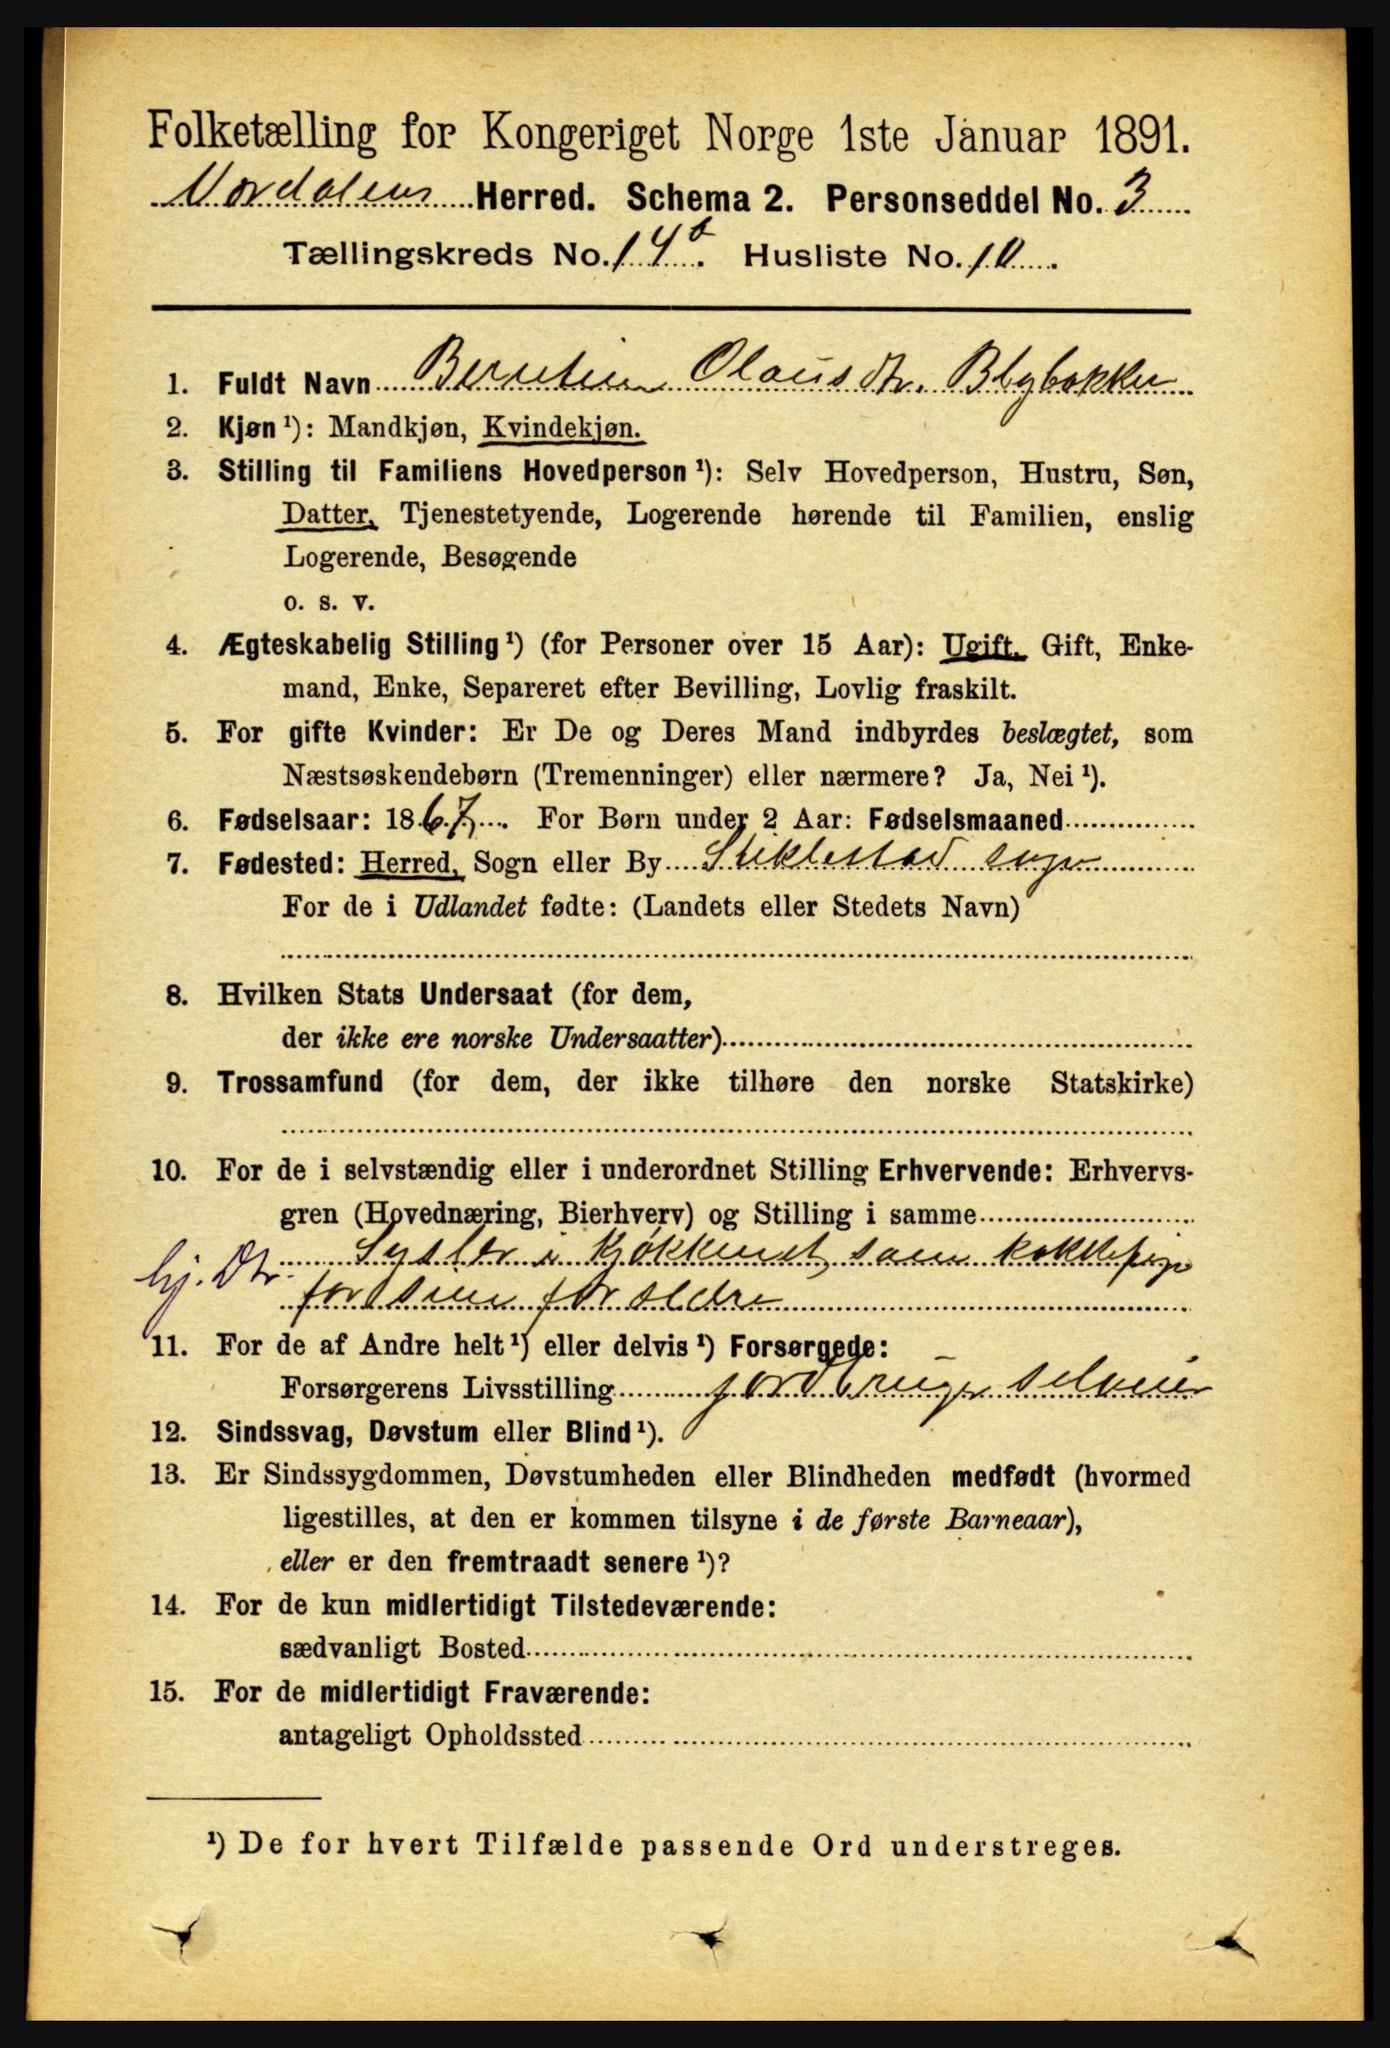 Folketælling for Kongeriget Norge 1ste Januar 1891.
Værdalens Herred. Schema 2. Personseddel No. 3
Tællingskreds No. 14 b. Husliste No. 10.
1. Fuldt Navn Berntine Olausdtr. Blybakken
2. Kjøn ¹): Mandkjøn, Kvindekjøn.
3. Stilling til Familiens Hovedperson ¹): Selv Hovedperson, Hustru, Søn,
Datter, Tjenestetyende, Logerende hørende til Familien, enslig
Logerende, Besøgende
o. s. v.
4. Ægteskabelig Stilling ¹) (for Personer over 15 Aar): Ugift, Gift, Enke-
mand, Enke, Separeret efter Bevilling, Lovlig fraskilt.
5. For gifte Kvinder: Er De og Deres Mand indbyrdes beslægtet, som
Næstsøskendebørn (Tremenninger) eller nærmere? Ja, Nei ¹).
6. Fødselsaar: 1867. For Børn under 2 Aar: Fødselsmaaned
7. Fødested: Herred, Sogn eller By Stiklestad sogn
For de i Udlandet fødte: (Landets eller Stedets Navn)
8. Hvilken Stats Undersaat (for dem,
der ikke ere norske Undersaatter)
9. Trossamfund (for dem, der ikke tilhøre den norske Statskirke)
10. For de i selvstændig eller i underordnet Stilling Erhvervende: Erhvervs-
gren (Hovednæring, Bierhverv) og Stilling i samme
Sysler i Kjøkkenet som kokkepige
hj. Dtr. for sine forældre
11. For de af Andre helt ¹) eller delvis ¹) Forsørgede:
Forsørgerens Livsstilling jordbruger selveier
12. Sindssvag, Døvstum eller Blind ¹).
13. Er Sindssygdommen, Døvstumheden eller Blindheden medfødt (hvormed
ligestilles, at den er kommen tilsyne i de første Barneaar),
eller er den fremtraadt senere ¹)?
14. For de kun midlertidigt Tilstedeværende:
sædvanligt Bosted
15. For de midlertidigt Fraværende:
antageligt Opholdssted
¹) De for hvert Tilfælde passende Ord understreges.